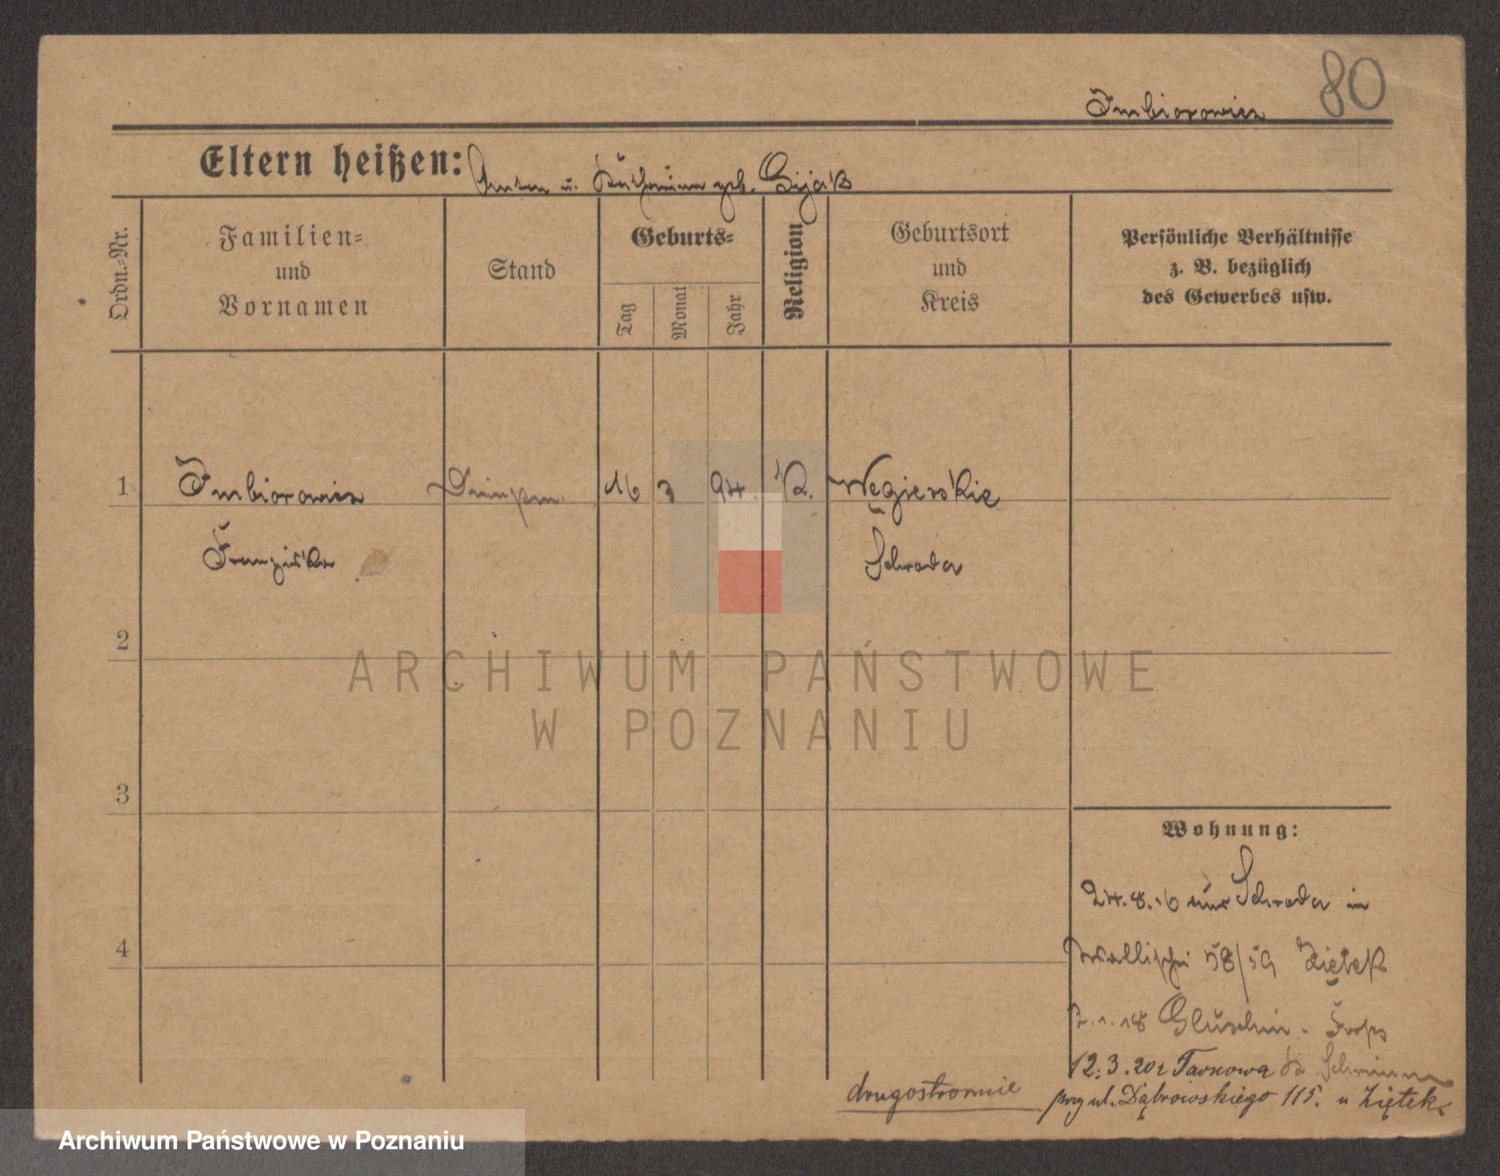 80
Imbiorowicz
Eltern heißen: Anton u. Katharina geb. Gijak
Ordn.-Nr.
Familien-
und
Vornamen
Stand
Geburts-
Tag
Monat
Jahr
Religion
Geburtsort
und
Kreis
Persönliche Verhältnisse
z. B. bezüglich
des Gewerbes usw.
1 Imbiorowicz 16 3 94 K. Węgierskie
Franziska Schroda
2
ARCHIWUM PAŃSTWOWE
W POZNANIU
3
Wohnung:
24.8.16 aus Schroda in
Wallischei 58/59 Ziętek
2.1.18 Gluschin
4
12.3.20 z Tarnowa
drugostronnie przy ul. Dąbrowskiego 115. u Ziętek
Archiwum Państwowe w Poznaniu